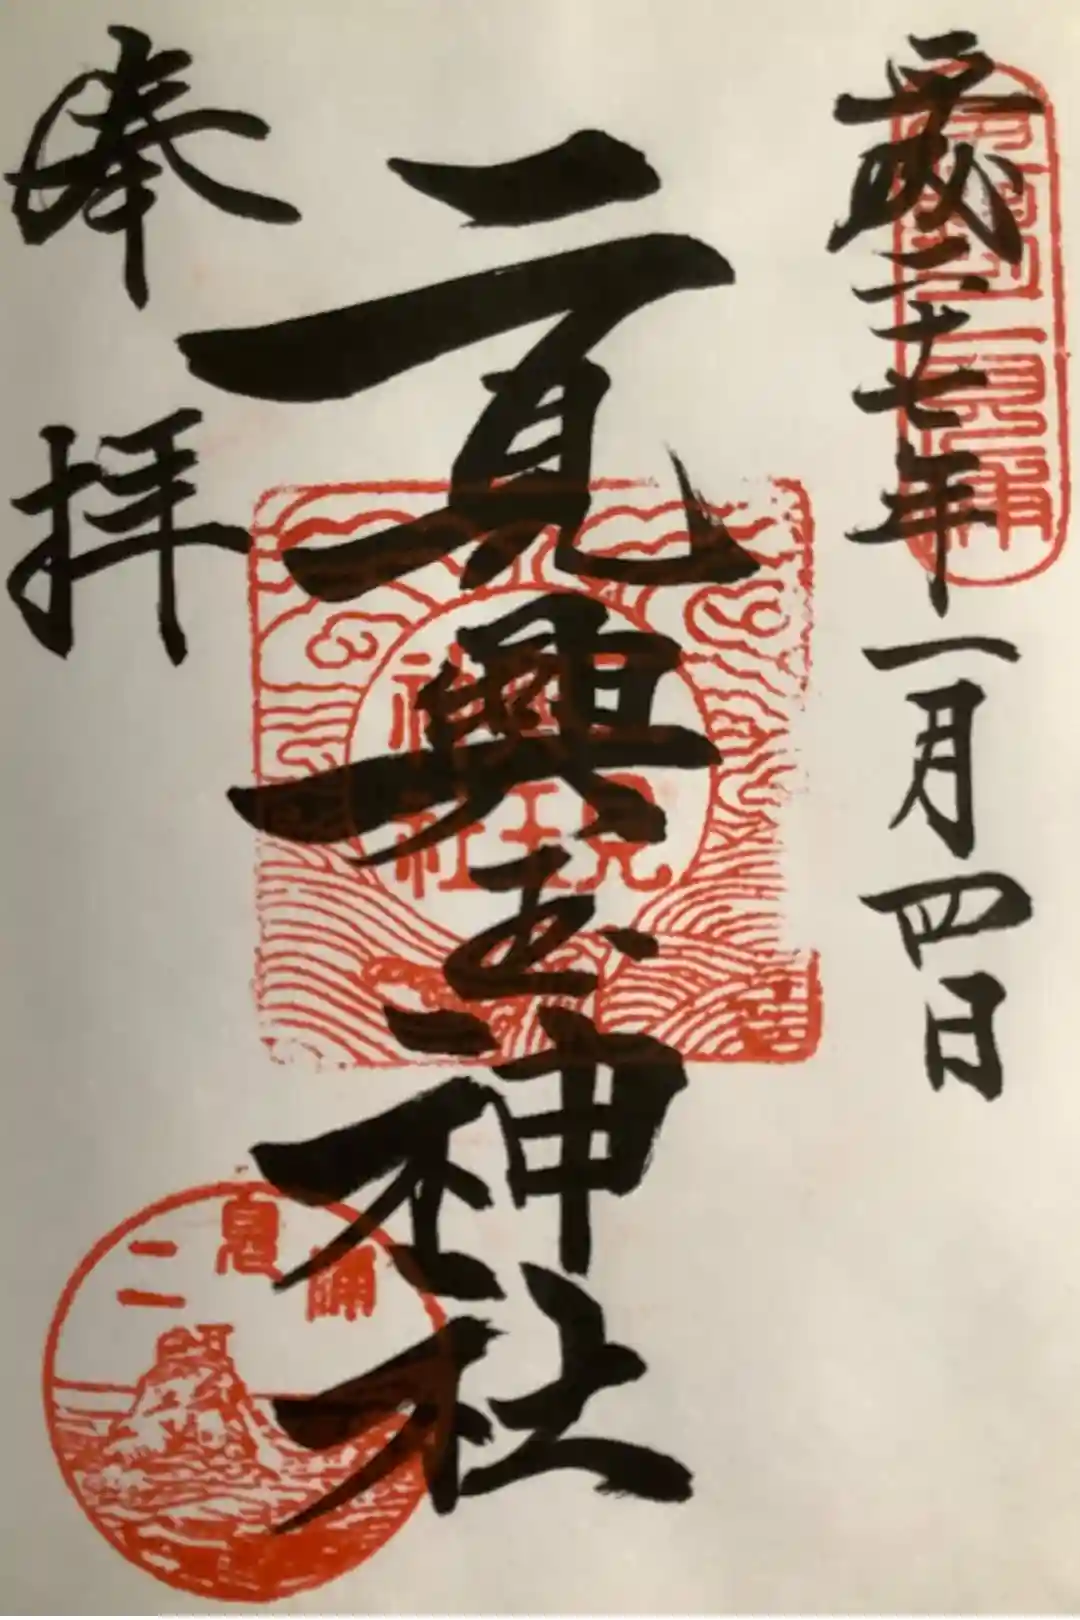 平成二十七年一月四日
二見興玉神社
奉拝
二見
興玉
神社